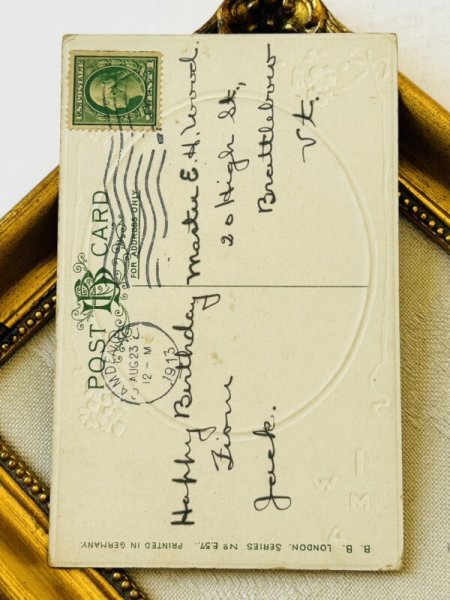 U.S.POSTAGE
POST CARD
FOR ADDRESS ONLY
AUG 23
12-M
1913
Happy Birthday
From
Jack.
Master E. H. Wood.
20 High St.,
Brattleboro
Vt.
B. B. LONDON. SERIES NO E.57.. PRINTED IN GERMANY.